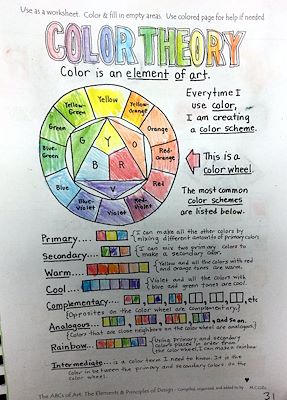 Use as a worksheet. Color & fill in empty areas. Use colored page for help if needed
COLOR THEORY
Color is an element of art.
Everytime I
use color,
I am creating
a color scheme.
Yellow
Yellow-Green
Yellow-Orange
Green
Orange
Blue-Green
Red-Orange
Blue
Red
Blue-Violet
Violet
Red-Violet
G
Y
O
B
R
V
This is a
color wheel.
The most common
color schemes
are listed below.
Primary....
I can make all the other colors by
mixing different amounts of primary colors
Secondary...
I can mix two primary colors to
make a secondary color.
Warm....
Yellow and all the colors with red
and orange tones are warm.
Cool....
Violet and all the colors with
blue and green tones are cool.
Complementary....
, etc
(Opposites on the color wheel are complementary.)
Analogous...
, and so on.
(Colors that are close neighbors on the color wheel are analogous)
Rainbow...
Using Primary and secondary
colors placed in order from
the color wheel, I can make rainbow
Intermediate....is a color term I need to know. It is the
color in between the primary and secondary colors on the
color wheel.
The ABCs of Art: The Elements & Principles of Design - Compiled, organized, and added to by
31